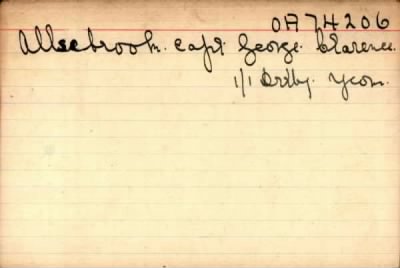 OA74206
Allsebrook. Capt. George. Clarence.
1/1 Derby. Yeom.